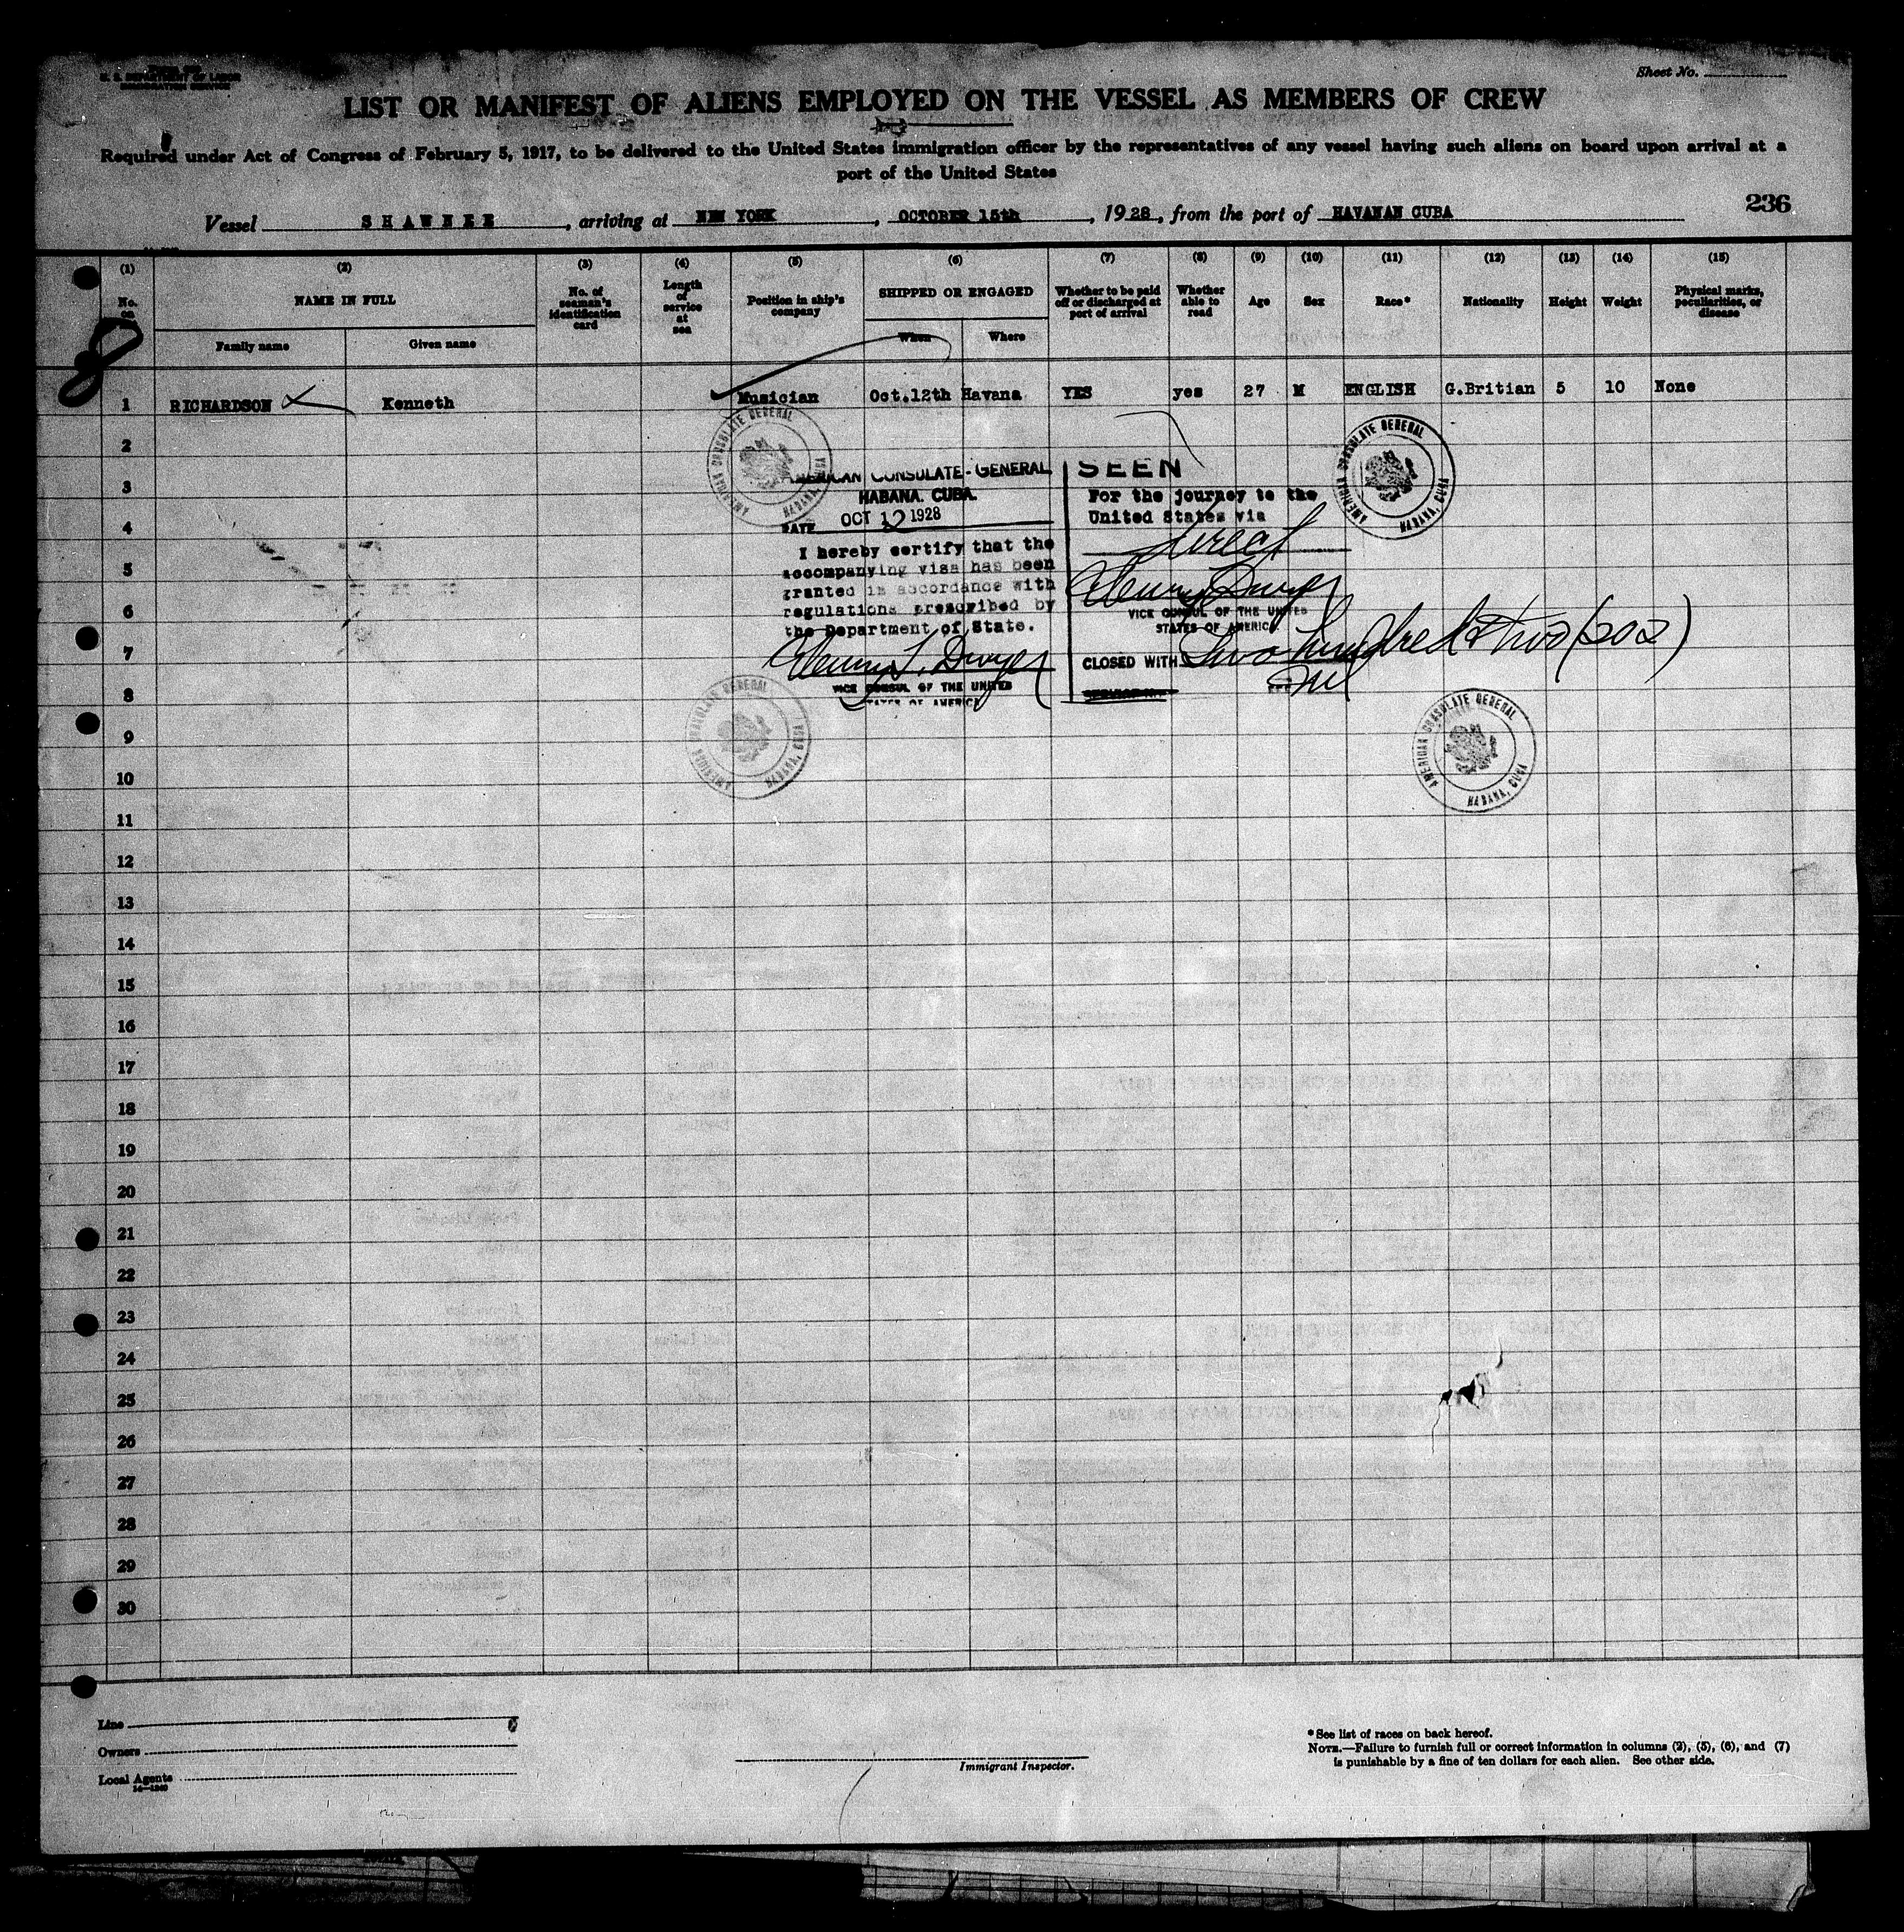 U. S. DEPARTMENT OF LABOR
IMMIGRATION SERVICE
Sheet No.
LIST OR MANIFEST OF ALIENS EMPLOYED ON THE VESSEL AS MEMBERS OF CREW
Required under Act of Congress of February 5, 1917, to be delivered to the United States immigration officer by the representatives of any vessel having such aliens on board upon arrival at a
port of the United States
236
Vessel SHAWNEE, arriving at NEW YORK, OCTOBER 15th, 1928, from the port of HAVANAN CUBA
(1) (2) (3) (4) (5) (6) (7) (8) (9) (10) (11) (12) (13) (14) (15)
No. on
NAME IN FULL
Family name
Given name
No. of seaman's identification card
Length of service at sea
Position in ship's company
SHIPPED OR ENGAGED
When
Where
Whether to be paid off or discharged at port of arrival
Whether able to read
Age
Sex
Race*
Nationality
Height
Weight
Physical marks, peculiarities, or disease
1 RICHARDSON Kenneth Musician Oct.12th Havana YES yes 27 M ENGLISH G.Britian 5 10 None
2
3
4
5
6
7
8
9
10
11
12
13
14
15
16
17
18
19
20
21
22
23
24
25
26
27
28
29
30
AMERICAN CONSULATE GENERAL HABANA, CUBA
AMERICAN CONSULATE-GENERAL
HABANA. CUBA.
DATE OCT 12 1928
I hereby certify that the
accompanying visa has been
granted in accordance with
regulations prescribed by
the Department of State.
Dwyer
VICE CONSUL OF THE UNITED
STATES OF AMERICA
SEEN
For the journey to the
United States via
direct
Dwyer
VICE CONSUL OF THE UNITED
STATES OF AMERICA
CLOSED WITH Two hundred & two (202)
AMERICAN CONSULATE GENERAL HABANA, CUBA
AMERICAN CONSULATE GENERAL HABANA, CUBA
AMERICAN CONSULATE GENERAL HABANA, CUBA
Line
Owners
Local Agents
Immigrant Inspector.
*See list of races on back hereof.
NOTE.—Failure to furnish full or correct information in columns (2), (5), (6), and (7)
is punishable by a fine of ten dollars for each alien. See other side.